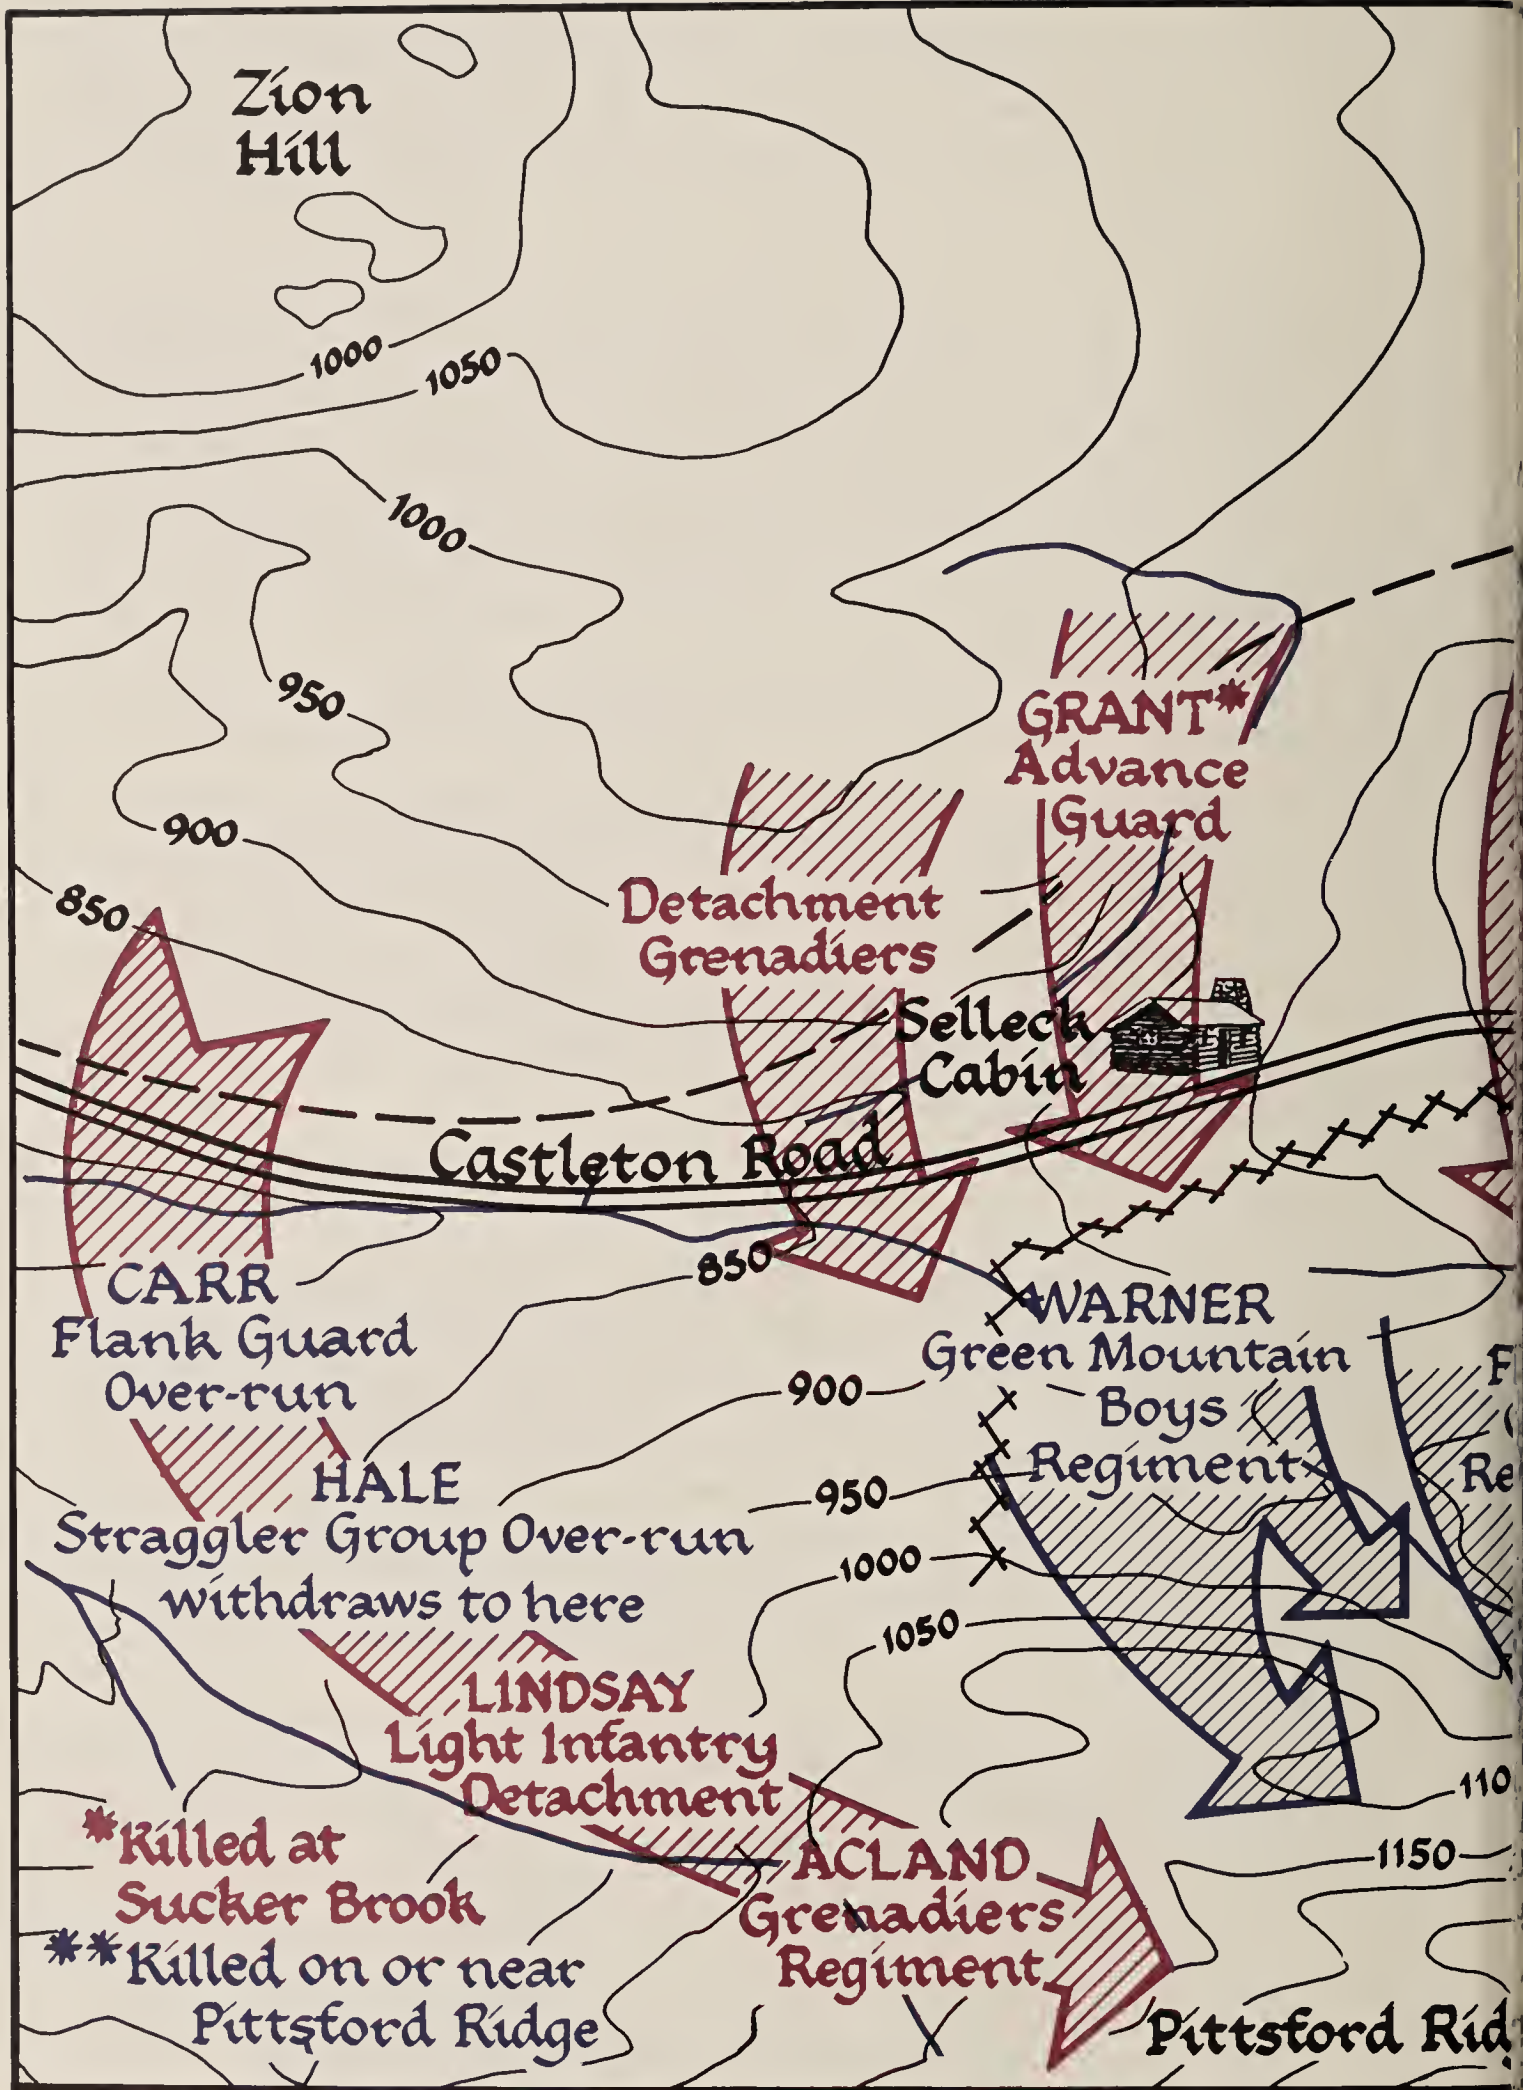 Zion
Hill
1000
1050
1000
950
GRANT*
Advance
Guard
900
850
Detachment
Grenadiers
Selleck
Cabin
Castleton Road
850
CARR
Flank Guard
Over-run
WARNER
Green Mountain
Boys
Regiment
F
Re
900
HALE
Straggler Group Over-run
withdraws to here
950
1000
1050
LINDSAY
Light Infantry
Detachment
110
1150
ACLAND
Grenadiers
Regiment
*Killed at
Sucker Brook
**Killed on or near
Pittsford Ridge
Pittsford Rid